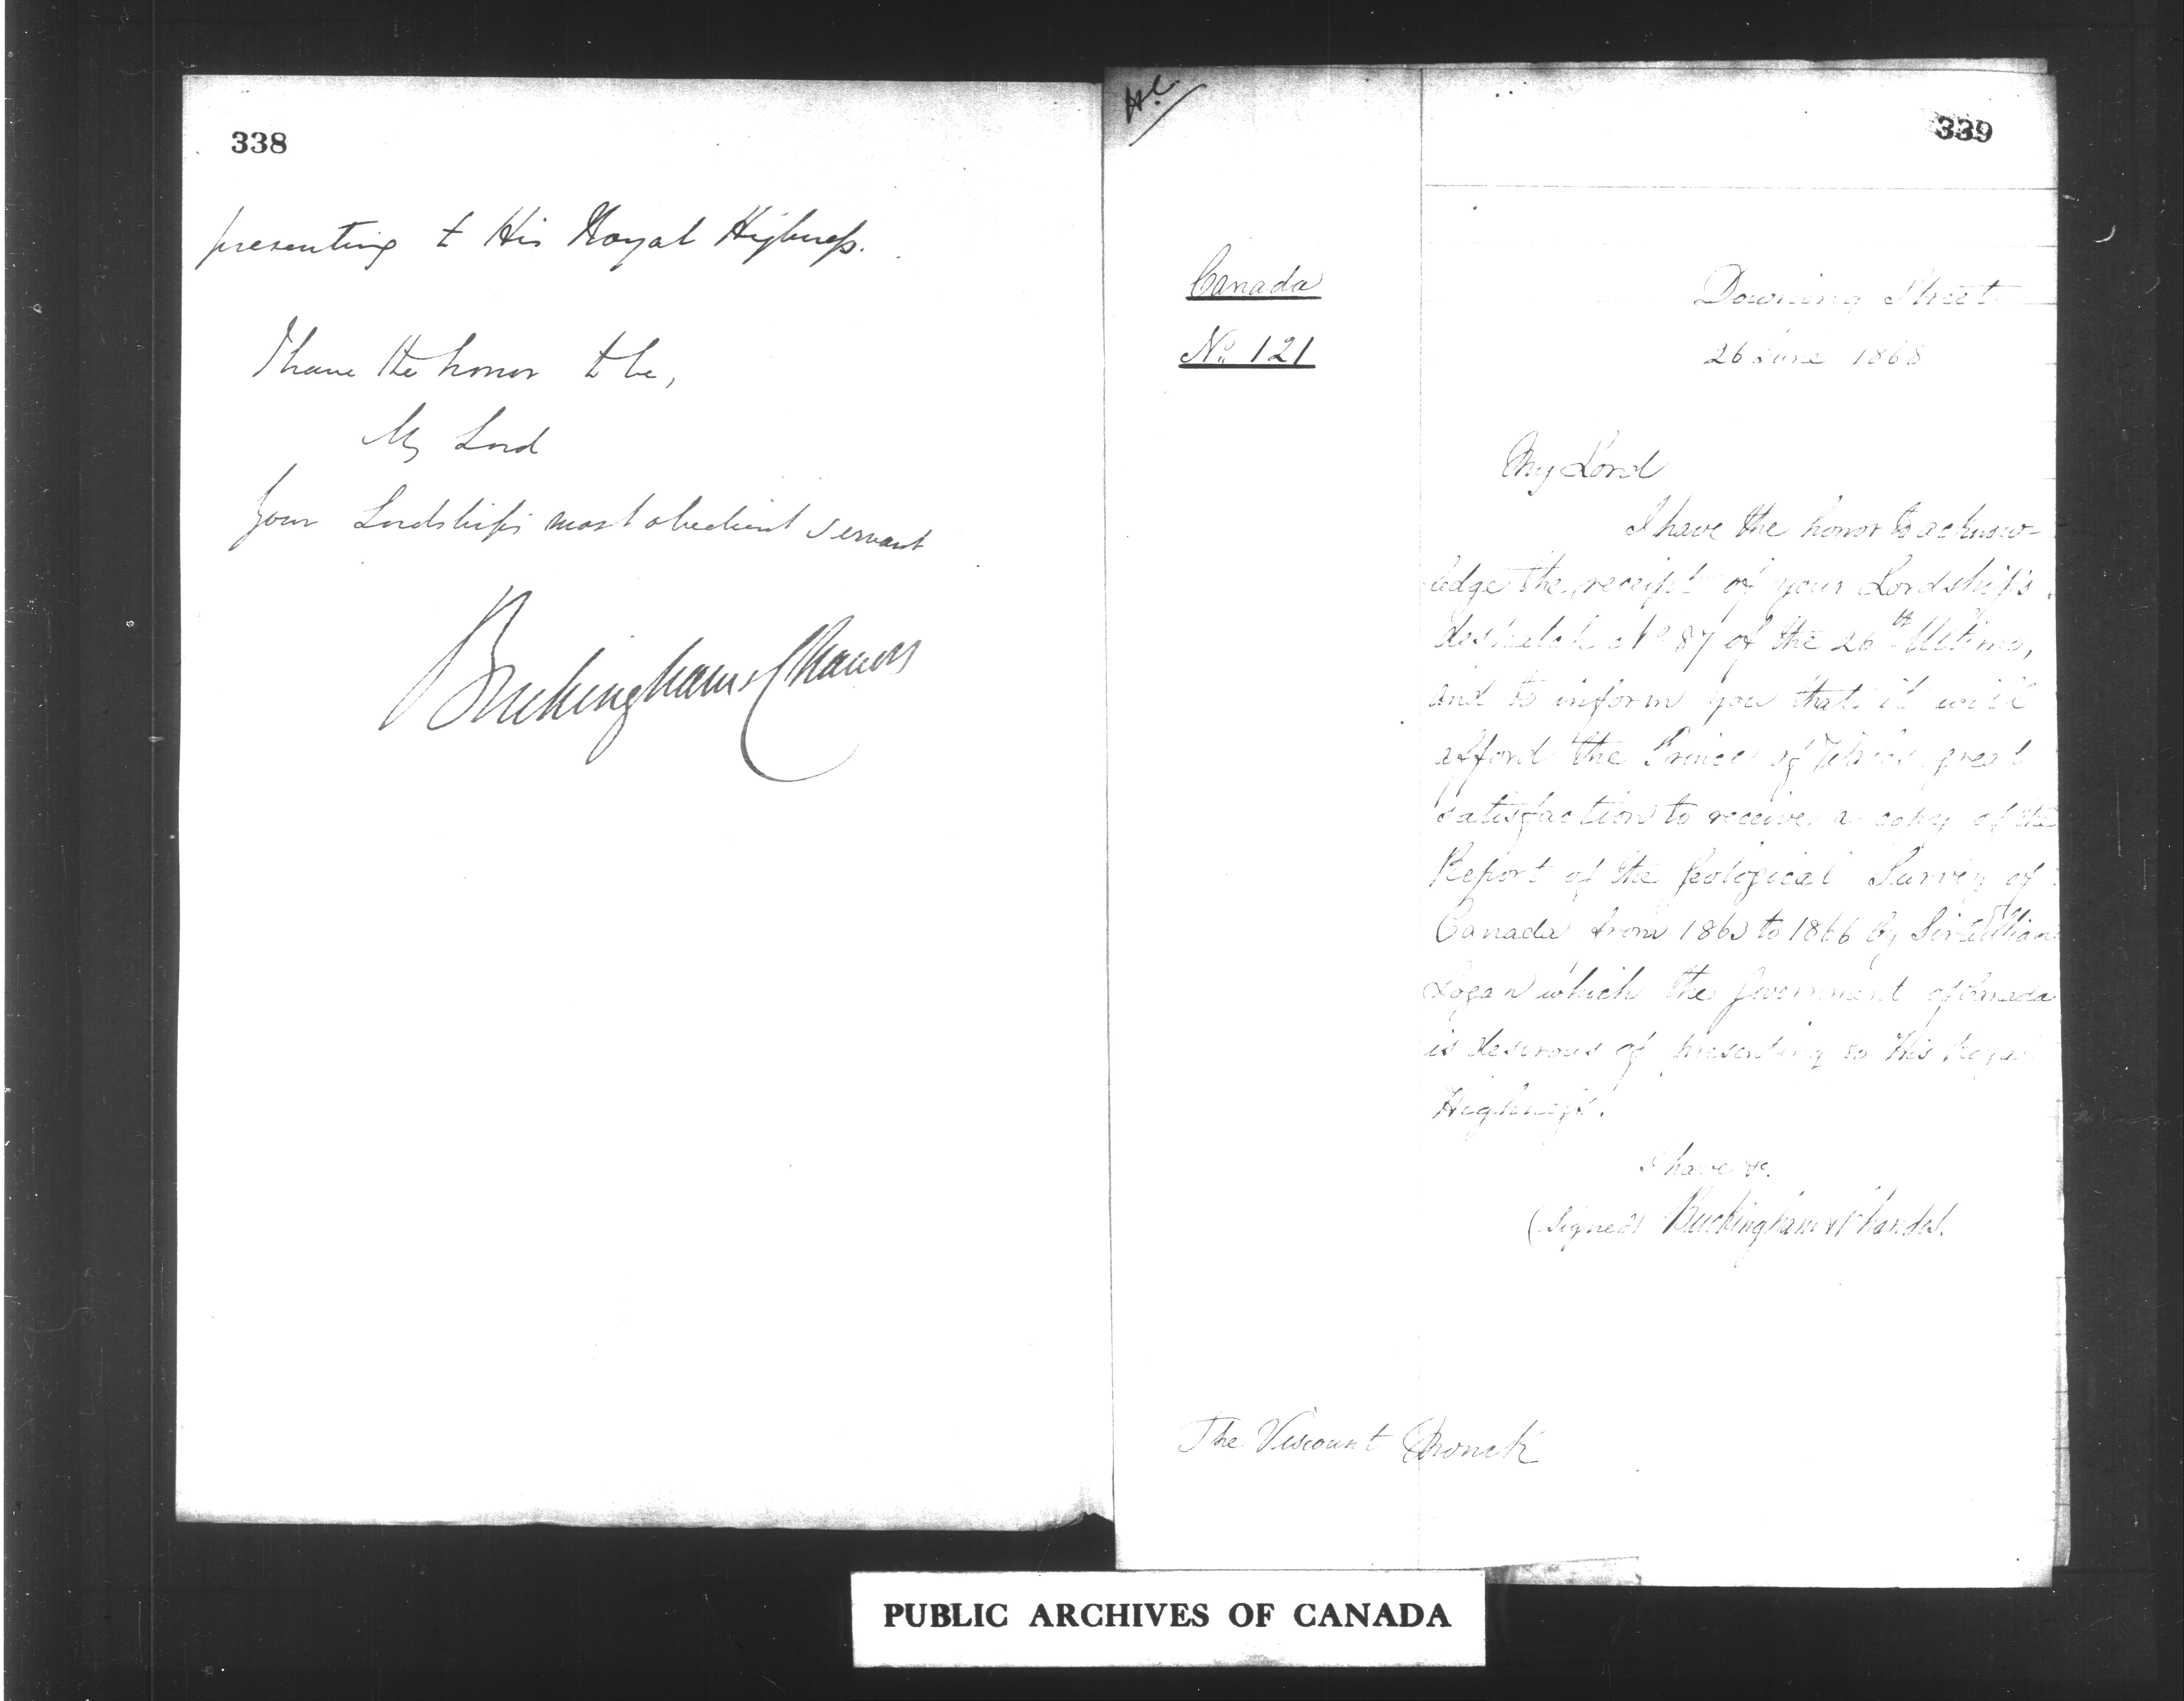 338
presenting to His Royal Highness.
I have the honor to be,
My Lord
Your Lordship's most obedient servant
Buckingham & Chandos
339
Canada
No. 121
Downing Street
26 June 1868
My Lord
I have the honor to acknow-
ledge the receipt of your Lordship's
despatch No 87 of the 26th Ultimo,
and to inform you that it will
afford the Prince of Wales great
satisfaction to receive a copy of the
Report of the Geological Survey of
Canada from to 1866 by Sir William
Logan which the Government of Canada
is desirous of presenting to His Royal
Highness.
I have &c.
(Signed) Buckingham & Chandos.
The Viscount Monck
PUBLIC ARCHIVES OF CANADA